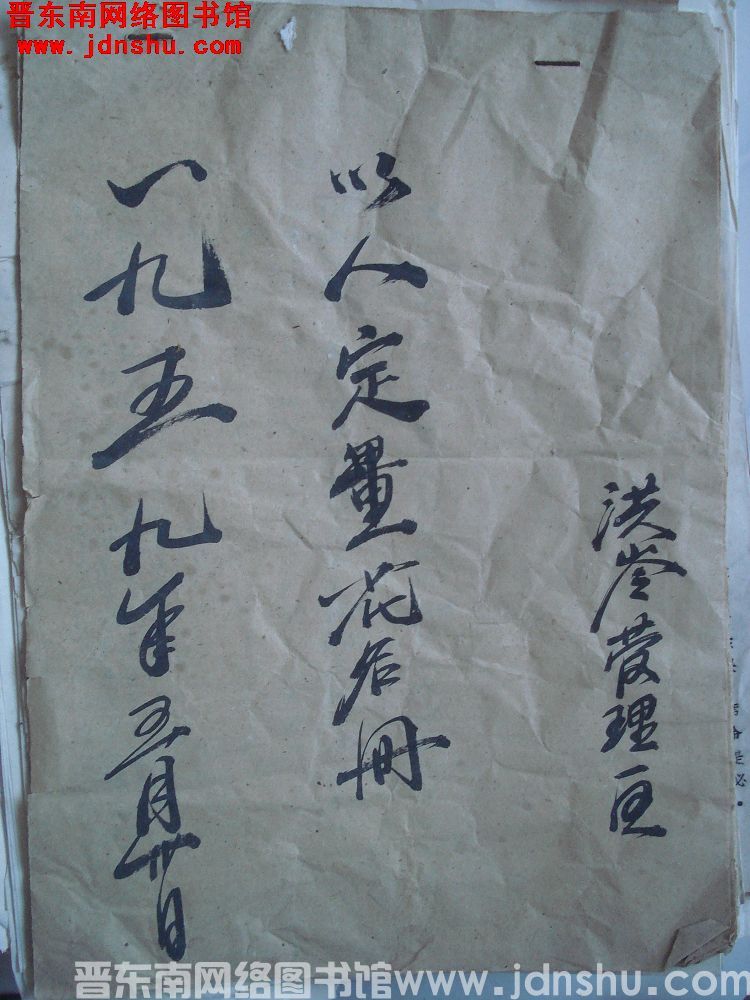 晋东南网络图书馆
www.jdnshu.com
洪峇管理区
以人定量花名册
一九五九年五月卅日
晋东南网络图书馆www.jdnshu.com